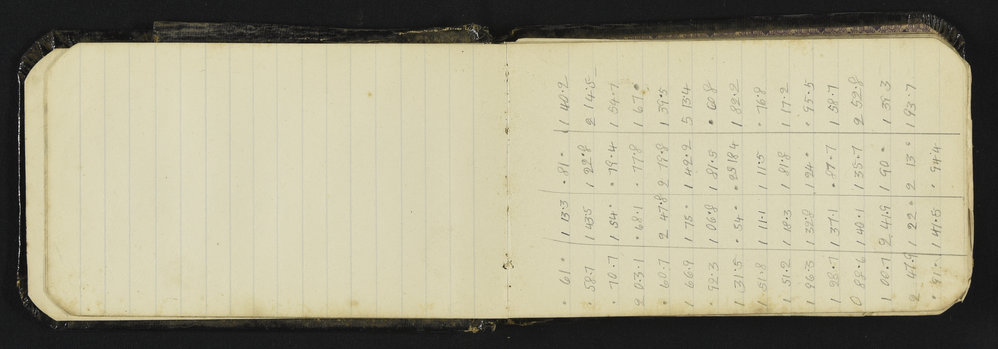 • 61 • 1 13.3 • 81 • 1 40.2
• 58.7 1 43.5 1 22.8 2 14.5
• 70.7 1 54 • • 79.4 1 54.7
2 03.1 • 68.1 • 77.8 1 67 •
• 60.7 2 47.8 2 79.8 1 39.5
1 66.9 1 75 • 1 42.2 5 13.4
• 92.3 1 06.8 1 81.5 • 60.8
1 31.5 • 54 • 1 82.2
1 51.8 1 11.1 1 11.5 • 76.8
1 51.2 1 18.3 1 81.8 1 17.2
1 96.3 1 32.8 1 24 • • 95.5
1 28.7 1 37.1 • 87.7 1 58.7
0 88.6 1 40.1 1 35.7 2 52.8
1 00.7 2 41.9 1 90 • 1 39.3
2 47.9 1 22 • 2 13 • 1 93.7
• 91 • 1 47.5 • 94.4